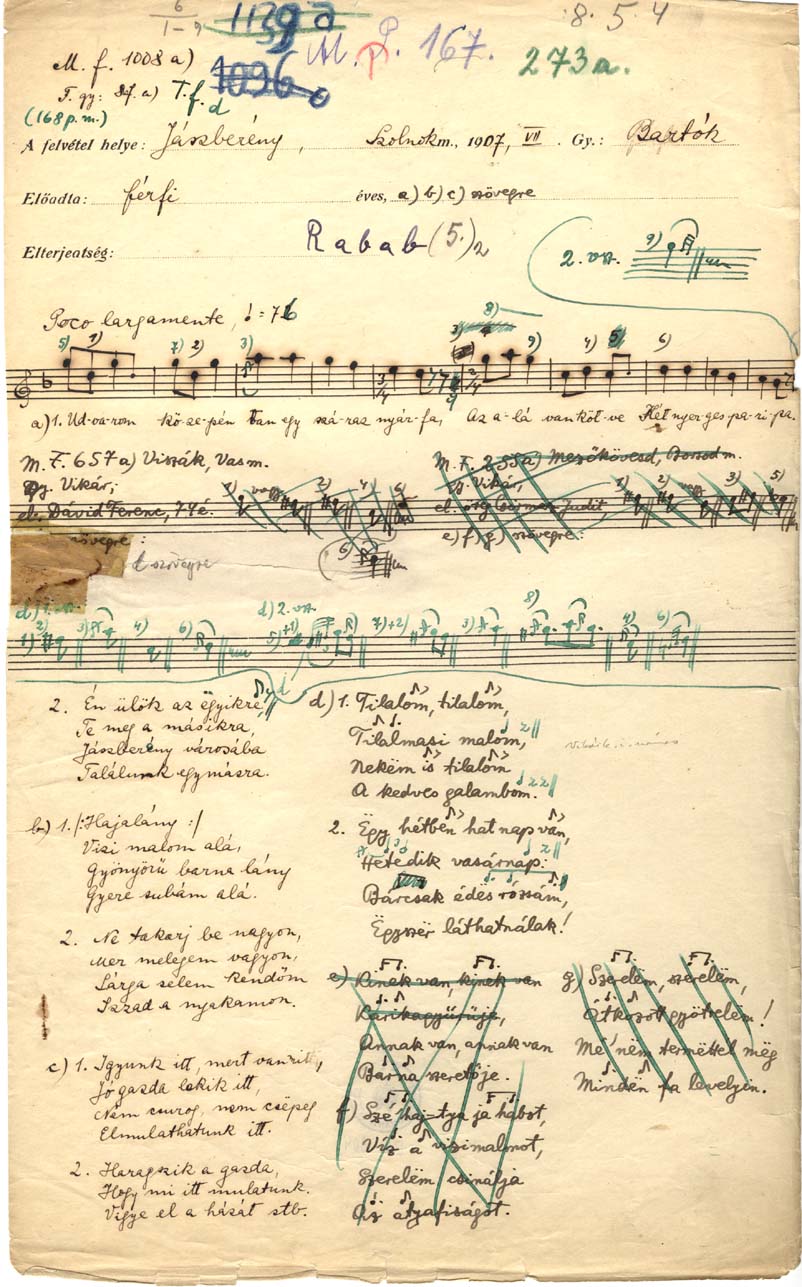 6
1-9
8. 5. 4
M. P. 167.
273a.
M. f. 1008 a)
1096
T. gy: 87. a) T.f. d
(168 p.m.)
A felvétel helye: Jászberény, Szolnok m., 1907, VII. Gy.: Bartók
Előadta: férfi éves, a) b) c) szövegre
Elterjeatség: Rabab(5.)2
2. vsz. 9)
Poco largamente, ♩ = 76
5) 1) 7) 2) 3) 3) 8) 9) 4) 5) 6)
a) 1. Ud-va-rom kö-ze-pén van egy szá-raz nyár-fa, Az a-lá van köt-ve Két nyer-ges pa-ri-pa.
M. F. 657 a) Viszák, Vas m.
Gy. Vikár;
el. Dávid Ferenc, 74 é.
szövegre:
d szövegre
M. F. 255a) Mezőkövesd, Borsod m.
gy. Vikár,
Judit
e) f) g) szövegre:
d) 1. vsz. d) 2. vsz. 8)
1) 2) 3) 4) 6) 5)+1) 7)+2) 3) 4) 6)
2. Én ülök az ëgyikre,
Te meg a másikra,
Jászberény városába
Találunk egymásra.
b) 1. /: Hajalány :/
Vizi malom alá,
Gyönyörű barna lány
Gyere subám alá.
2. Ne takarj be nagyon,
Mer melegem vagyon,
Sárga selem kendőm
Izzad a nyakamon.
c) 1. Igyunk itt, mert van itt,
Jó gazda lakik itt,
Nem csurog, nem csëpeg
Elmulathatunk itt.
2. Haragszik a gazda,
Hogy mi itt mulatunk.
Vigye el a házát stb.
d) 1. Tilalom, tilalom,
Tilalmasi malom,
Nekëm is tilalom
A kedves galambom.
2. Ëgy hétbën hat nap van,
Hetedik vasárnap:
Bárcsak édës rózsám,
Ëgyszër láthatnálak!
e) Kinek van, kinek van
Karikagyűrűje,
Annak van, annak van
Barna szeretője.
f) Szél haj-tya ja habot,
Víz a vizimalmot,
Szerelëm csinálja
Az atyafiságot.
g) Szerelëm, szerelëm,
Átkozot gyötrelëm!
Me' nëm termëttel mëg
Mindën fa levelyin.